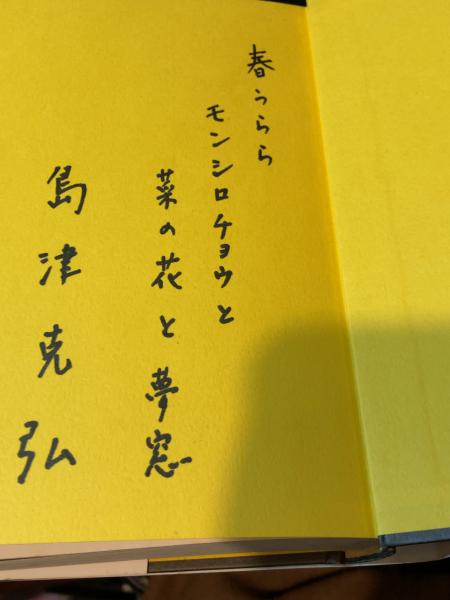 春うらら
モンシロチョウと
菜の花と夢窓
島津克弘